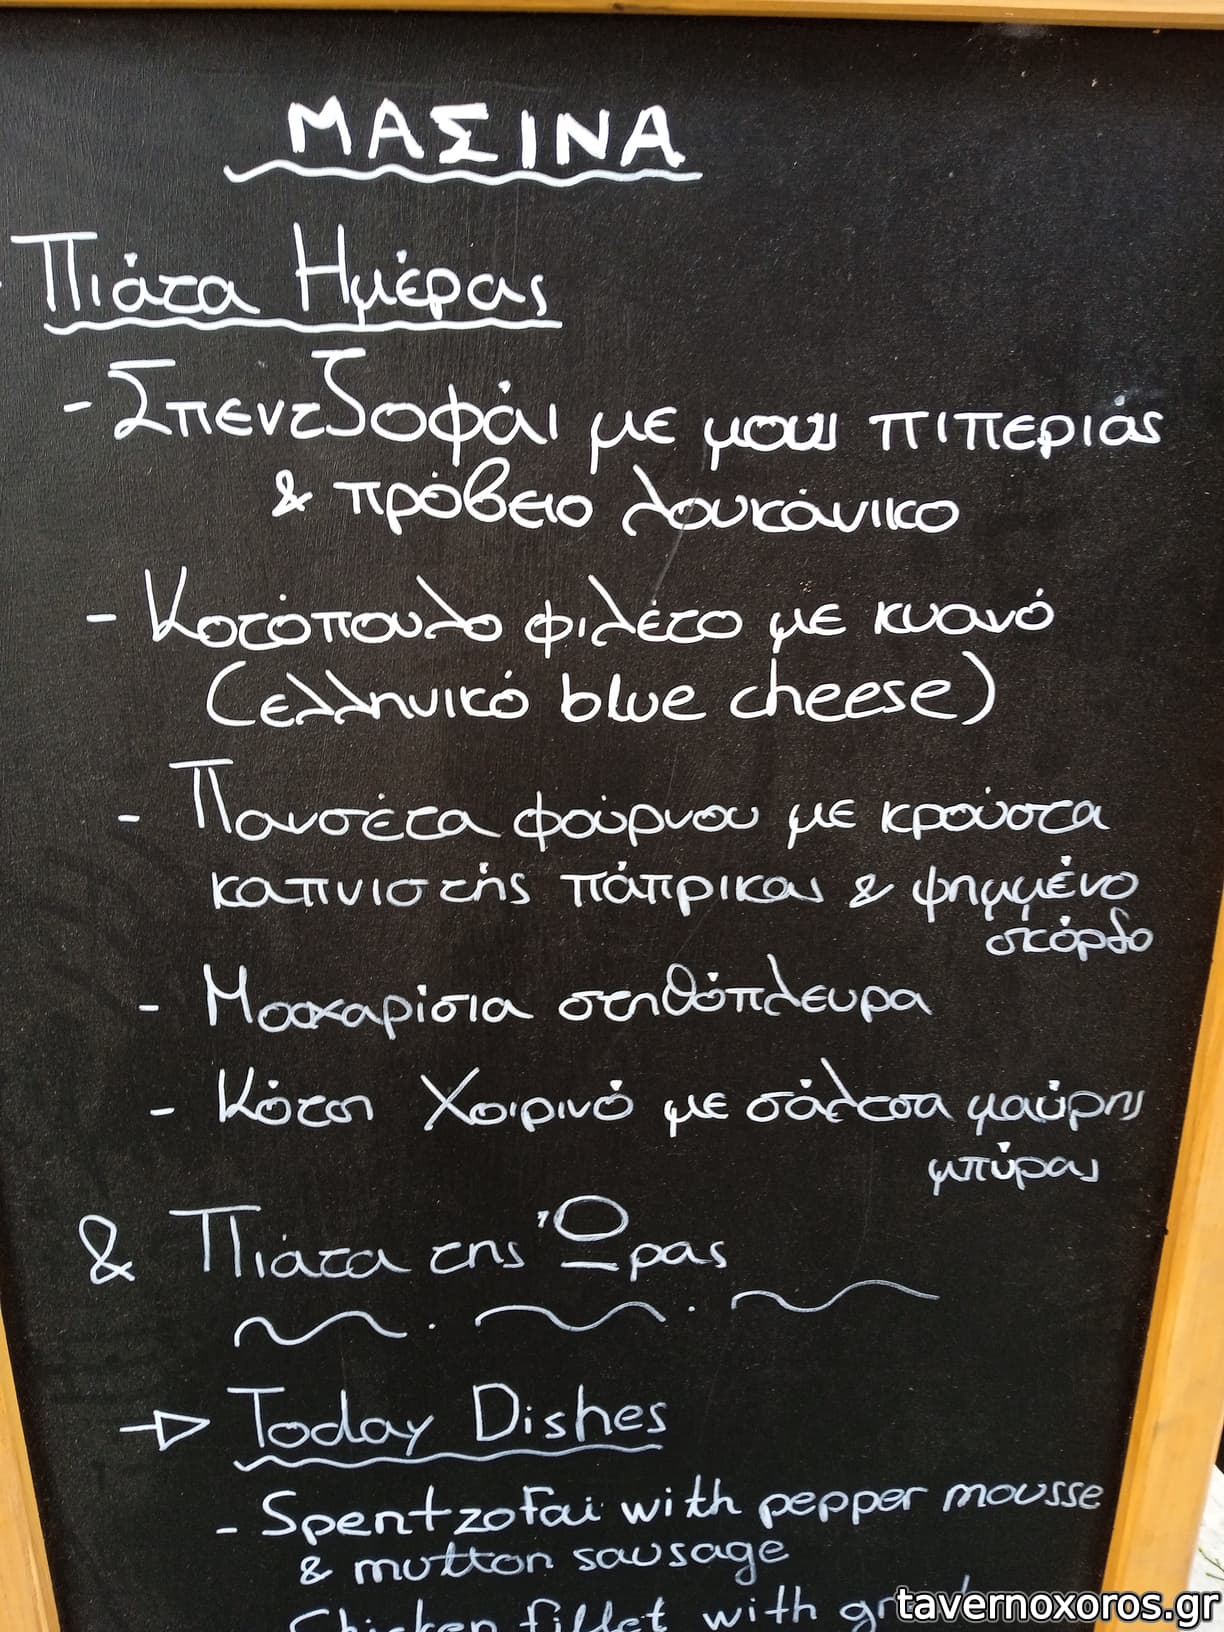 ΜΑΣΙΝΑ
Πιάτα Ημέρας
- Σπεντζοφάι με μους πιπεριάς
& πρόβειο λουκάνικο
- Κοτόπουλο φιλέτο με κυανό
(ελληνικό blue cheese)
- Πανσέτα φούρνου με κρούστα
καπνιστής πάπρικας & ψημμένο
σκόρδο
- Μοσχαρίσια στηθόπλευρα
- Κότσι Χοιρινό με σάλτσα μαύρης
μπύρας
& Πιάτα της Ώρας
Today Dishes
- Spentzofai with pepper mousse
& mutton sausage
Chicken fillet with
tavernoxoros.gr